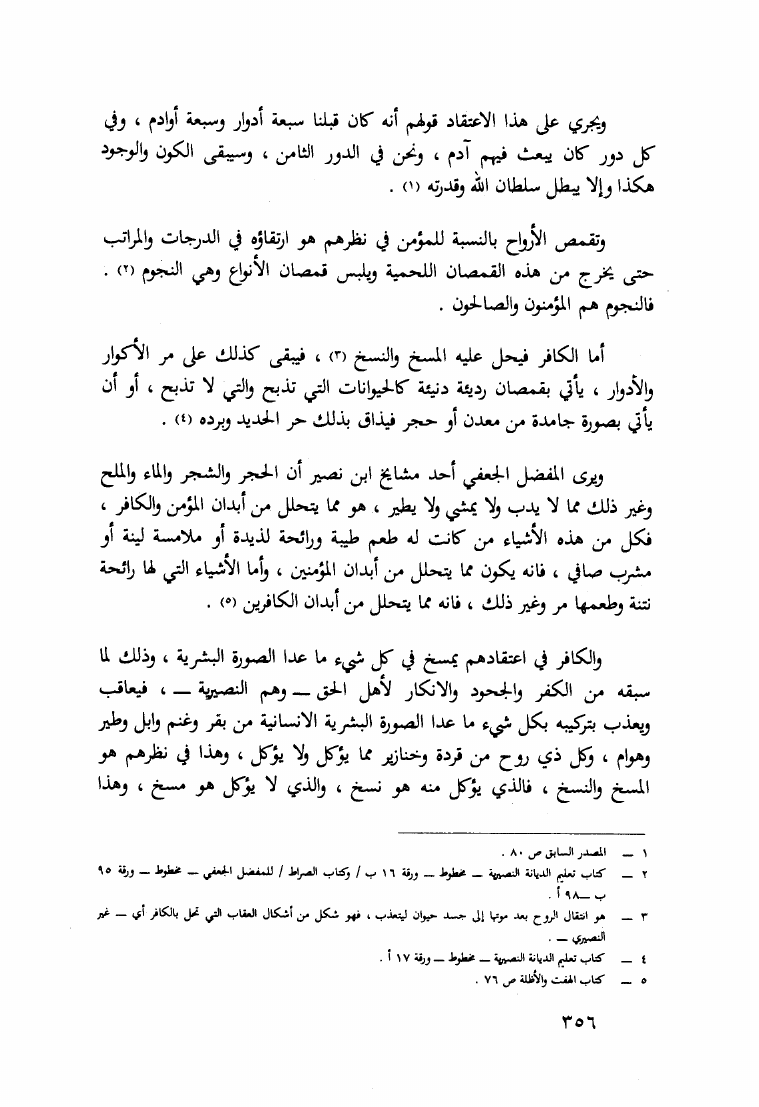 ويجري على هذا الاعتقاد قولهم أنه كان قبلنا سبعة أدوار وسبعة أوادم ، وفي
كل دور كان يبعث فيهم آدم ، ونحن في الدور الثامن ، وسيبقى الكون والوجود
هكذا وإلا يبطل سلطان الله وقدرته (١) .
وتقمص الأرواح بالنسبة للمؤمن في نظرهم هو ارتقاؤه في الدرجات والمراتب
حتى يخرج من هذه القمصان اللحمية ويلبس قمصان الأنواع وهي النجوم (٢) .
فالنجوم هم المؤمنون والصالحون .
أما الكافر فيحل عليه المسخ والنسخ (٣) ، فيبقى كذلك على مر الأكوار
والأدوار ، يأتي بقمصان رديئة دنيئة كالحيوانات التي تذبح والتي لا تذبح ، أو أن
يأتي بصورة جامدة من معدن أو حجر فيذاق بذلك حر الحديد وبرده (٤) .
ويرى المفضل الجعفي أحد مشايخ ابن نصير أن الحجر والشجر والماء والملح
وغير ذلك مما لا يدب ولا يمشي ولا يطير ، هو مما يتحلل من أبدان المؤمن والكافر ،
فكل من هذه الأشياء من كانت له طعم طيبة ورائحة لذيذة أو ملامسة لينة أو
مشرب صافي ، فانه يكون مما يتحلل من أبدان المؤمنين ، وأما الأشياء التي لها رائحة
نتنة وطعمها مر وغير ذلك ، فانه مما يتحلل من أبدان الكافرين (٥) .
والكافر في اعتقادهم يمسخ في كل شيء ما عدا الصورة البشرية ، وذلك لما
سبقه من الكفر والجحود والانكار لأهل الحق ــ وهم النصيرية ــ ، فيعاقب
ويعذب بتركيبه بكل شيء ما عدا الصورة البشرية الانسانية من بقر وغنم وابل وطير
وهوام ، وكل ذي روح من قردة وخنازير مما يؤكل ولا يؤكل ، وهذا في نظرهم هو
المسخ والنسخ ، فالذي يؤكل منه هو نسخ ، والذي لا يؤكل هو مسخ ، وهذا
١ ــ المصدر السابق ص ٨٠ .
٢ ــ كتاب تعليم الديانة النصيرية ــ مخطوط ــ ورقة ١٦ ب / وكتاب الصراط / للمفضل الجعفي ــ مخطوط ــ ورقة ٩٥
ب ــ ٩٨ أ .
٣ ــ هو انتقال الروح بعد موتها إلى جسد حيوان ليتعذب ، فهو شكل من أشكال العقاب التي تحل بالكافر أي ــ غير
النصيري ــ .
٤ ــ كتاب تعليم الديانة النصيرية ــ مخطوط ــ ورقة ١٧ أ .
٥ ــ كتاب الهفت والأظلة ص ٧٦ .
٣٥٦